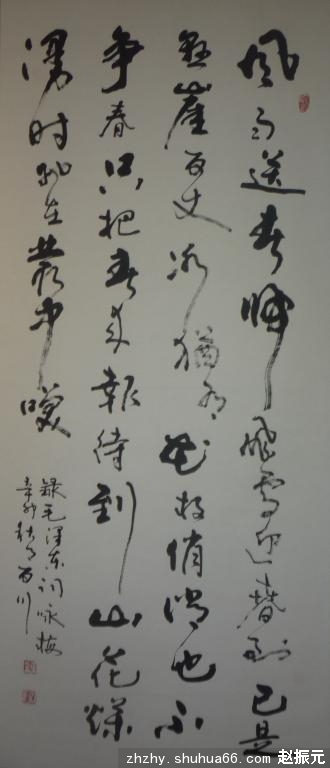 風雨送春歸飛雪迎春到已是
懸崖百丈冰猶有花枝俏俏也不
争春只把春来報待到山花爛
漫时她在叢中笑
録毛澤东词咏梅
辛卯秋月百川
zhzhy.shuhua66.com 赵振元